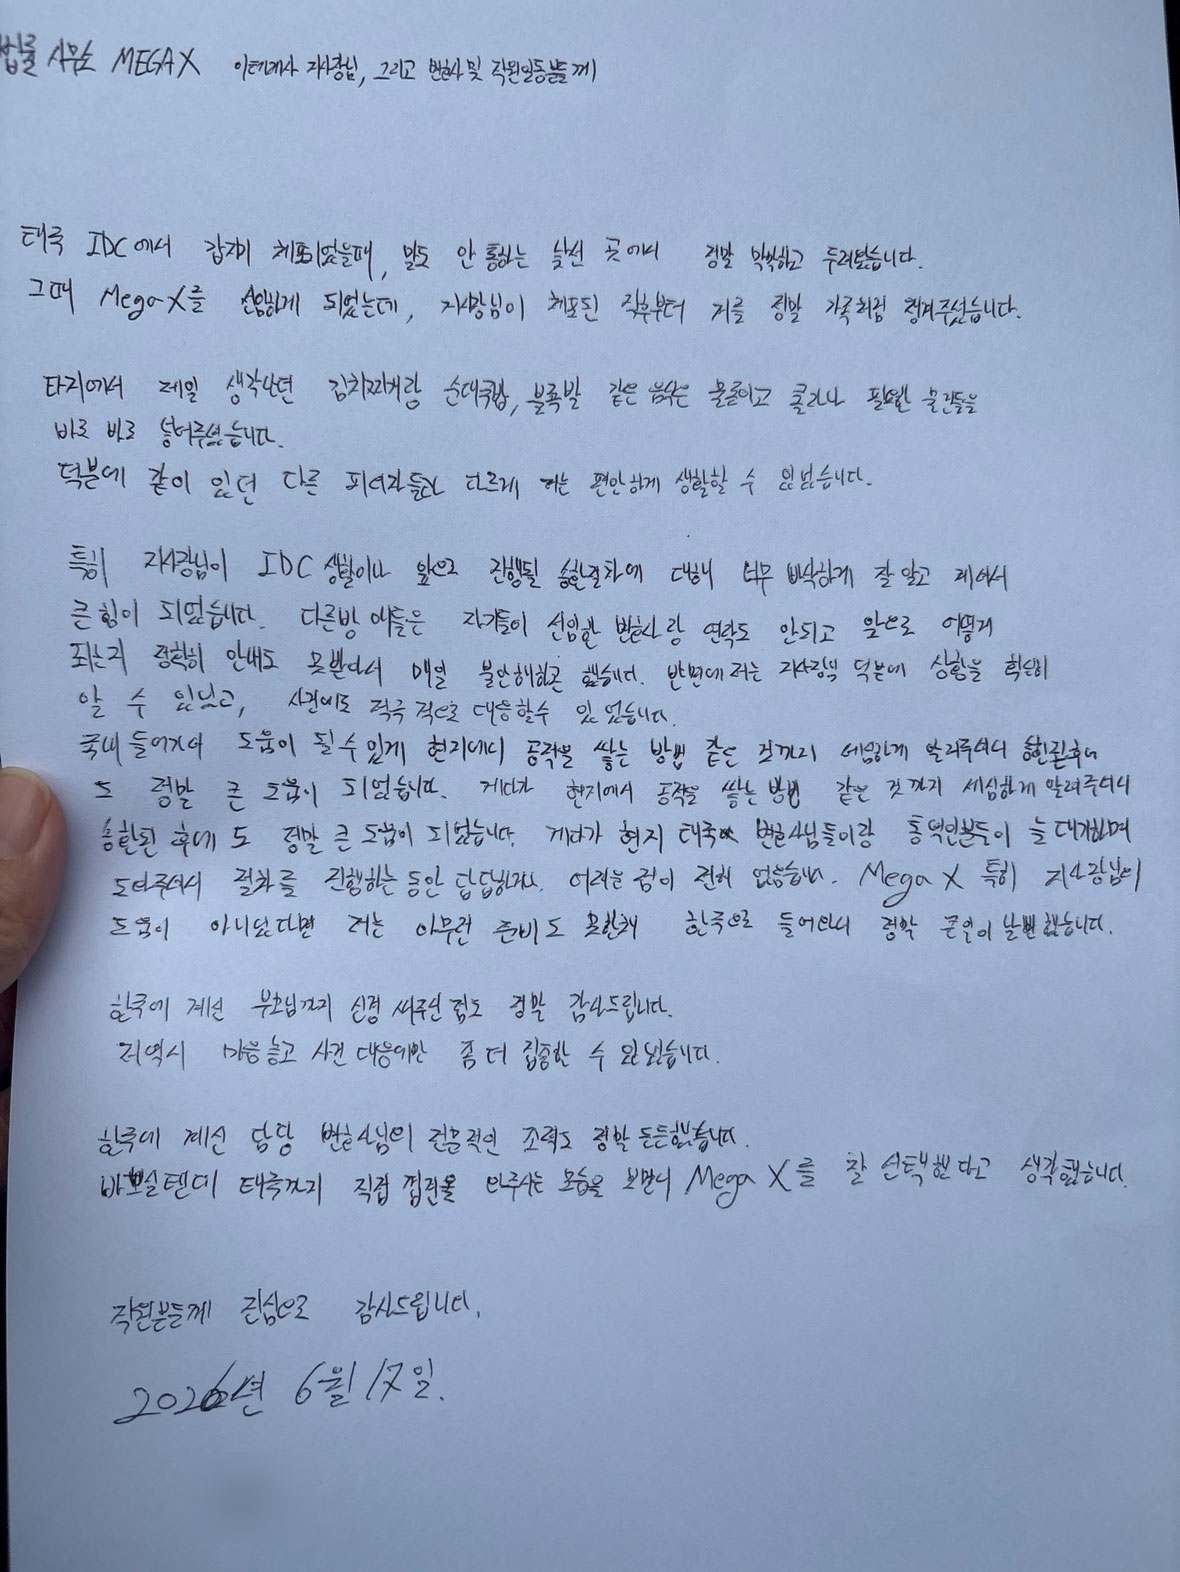 법률 사무소 MEGA X 지사장님, 그리고 변호사 및 직원일동분들께
태국 IDC에서 갑자기 체포되었을때, 말도 안 통하는 낯선 곳에서 정말 막막하고 두려웠습니다.
그때 Mega X를 선임하게 되었는데, 지사장님이 체포된 직후부터 저를 정말 가족처럼 챙겨주셨습니다.
타지에서 제일 생각나던 김치찌개랑 순대국밥, 불족발 같은 음식은 물론이고 콜라나 필요한 물건들을
바로 바로 넣어주셨습니다.
덕분에 같이 있던 다른 피의자들과 다르게 저는 편안하게 생활할 수 있었습니다.
특히 지사장님이 IDC 생활이나 앞으로 진행될 송환절차에 대해 너무 빠삭하게 잘 알고 계셔서
큰 힘이 되었습니다. 다른방 애들은 자기들이 선임한 변호사랑 연락도 안되고 앞으로 어떻게
되는지 정확히 안내도 못받아서 매일 불안해하곤 했습니다. 반면에 저는 지사장님 덕분에 상황을 확실히
알 수 있었고, 사건에도 적극적으로 대응할수 있었습니다.
국내 들어가서 도움이 될 수 있게 현지에서 공적을 쌓는 방법 같은 것까지 세심하게 알려주셔서 송환된후에
도 정말 큰 도움이 되었습니다. 게다가 현지에서 공적을 쌓는 방법 같은 것까지 세심하게 알려주셔서
송환된 후에도 정말 큰 도움이 되었습니다. 게다가 현지 태국 변호사님들이랑 통역인분들이 늘 대기하며
도와주셔서 절차를 진행하는 동안 답답하거나 어려운 점이 전혀 없었습니다. Mega X 특히 지사장님의
도움이 아니었다면 저는 아무런 준비도 못한채 한국으로 들어와서 정말 큰일이 날뻔했습니다.
한국에 계신 부모님까지 신경 써주신 점도 정말 감사드립니다.
저 역시 마음 놓고 사건 대응에만 좀 더 집중할 수 있었습니다.
한국에 계신 담당 변호사님의 전문적인 조력도 정말 든든했습니다.
바쁘실텐데 태국까지 직접 접견을 와주시는 모습을 보면서 Mega X를 잘 선택했다고 생각했습니다.
직원분들께 진심으로 감사드립니다.
2026년 6월 17일.